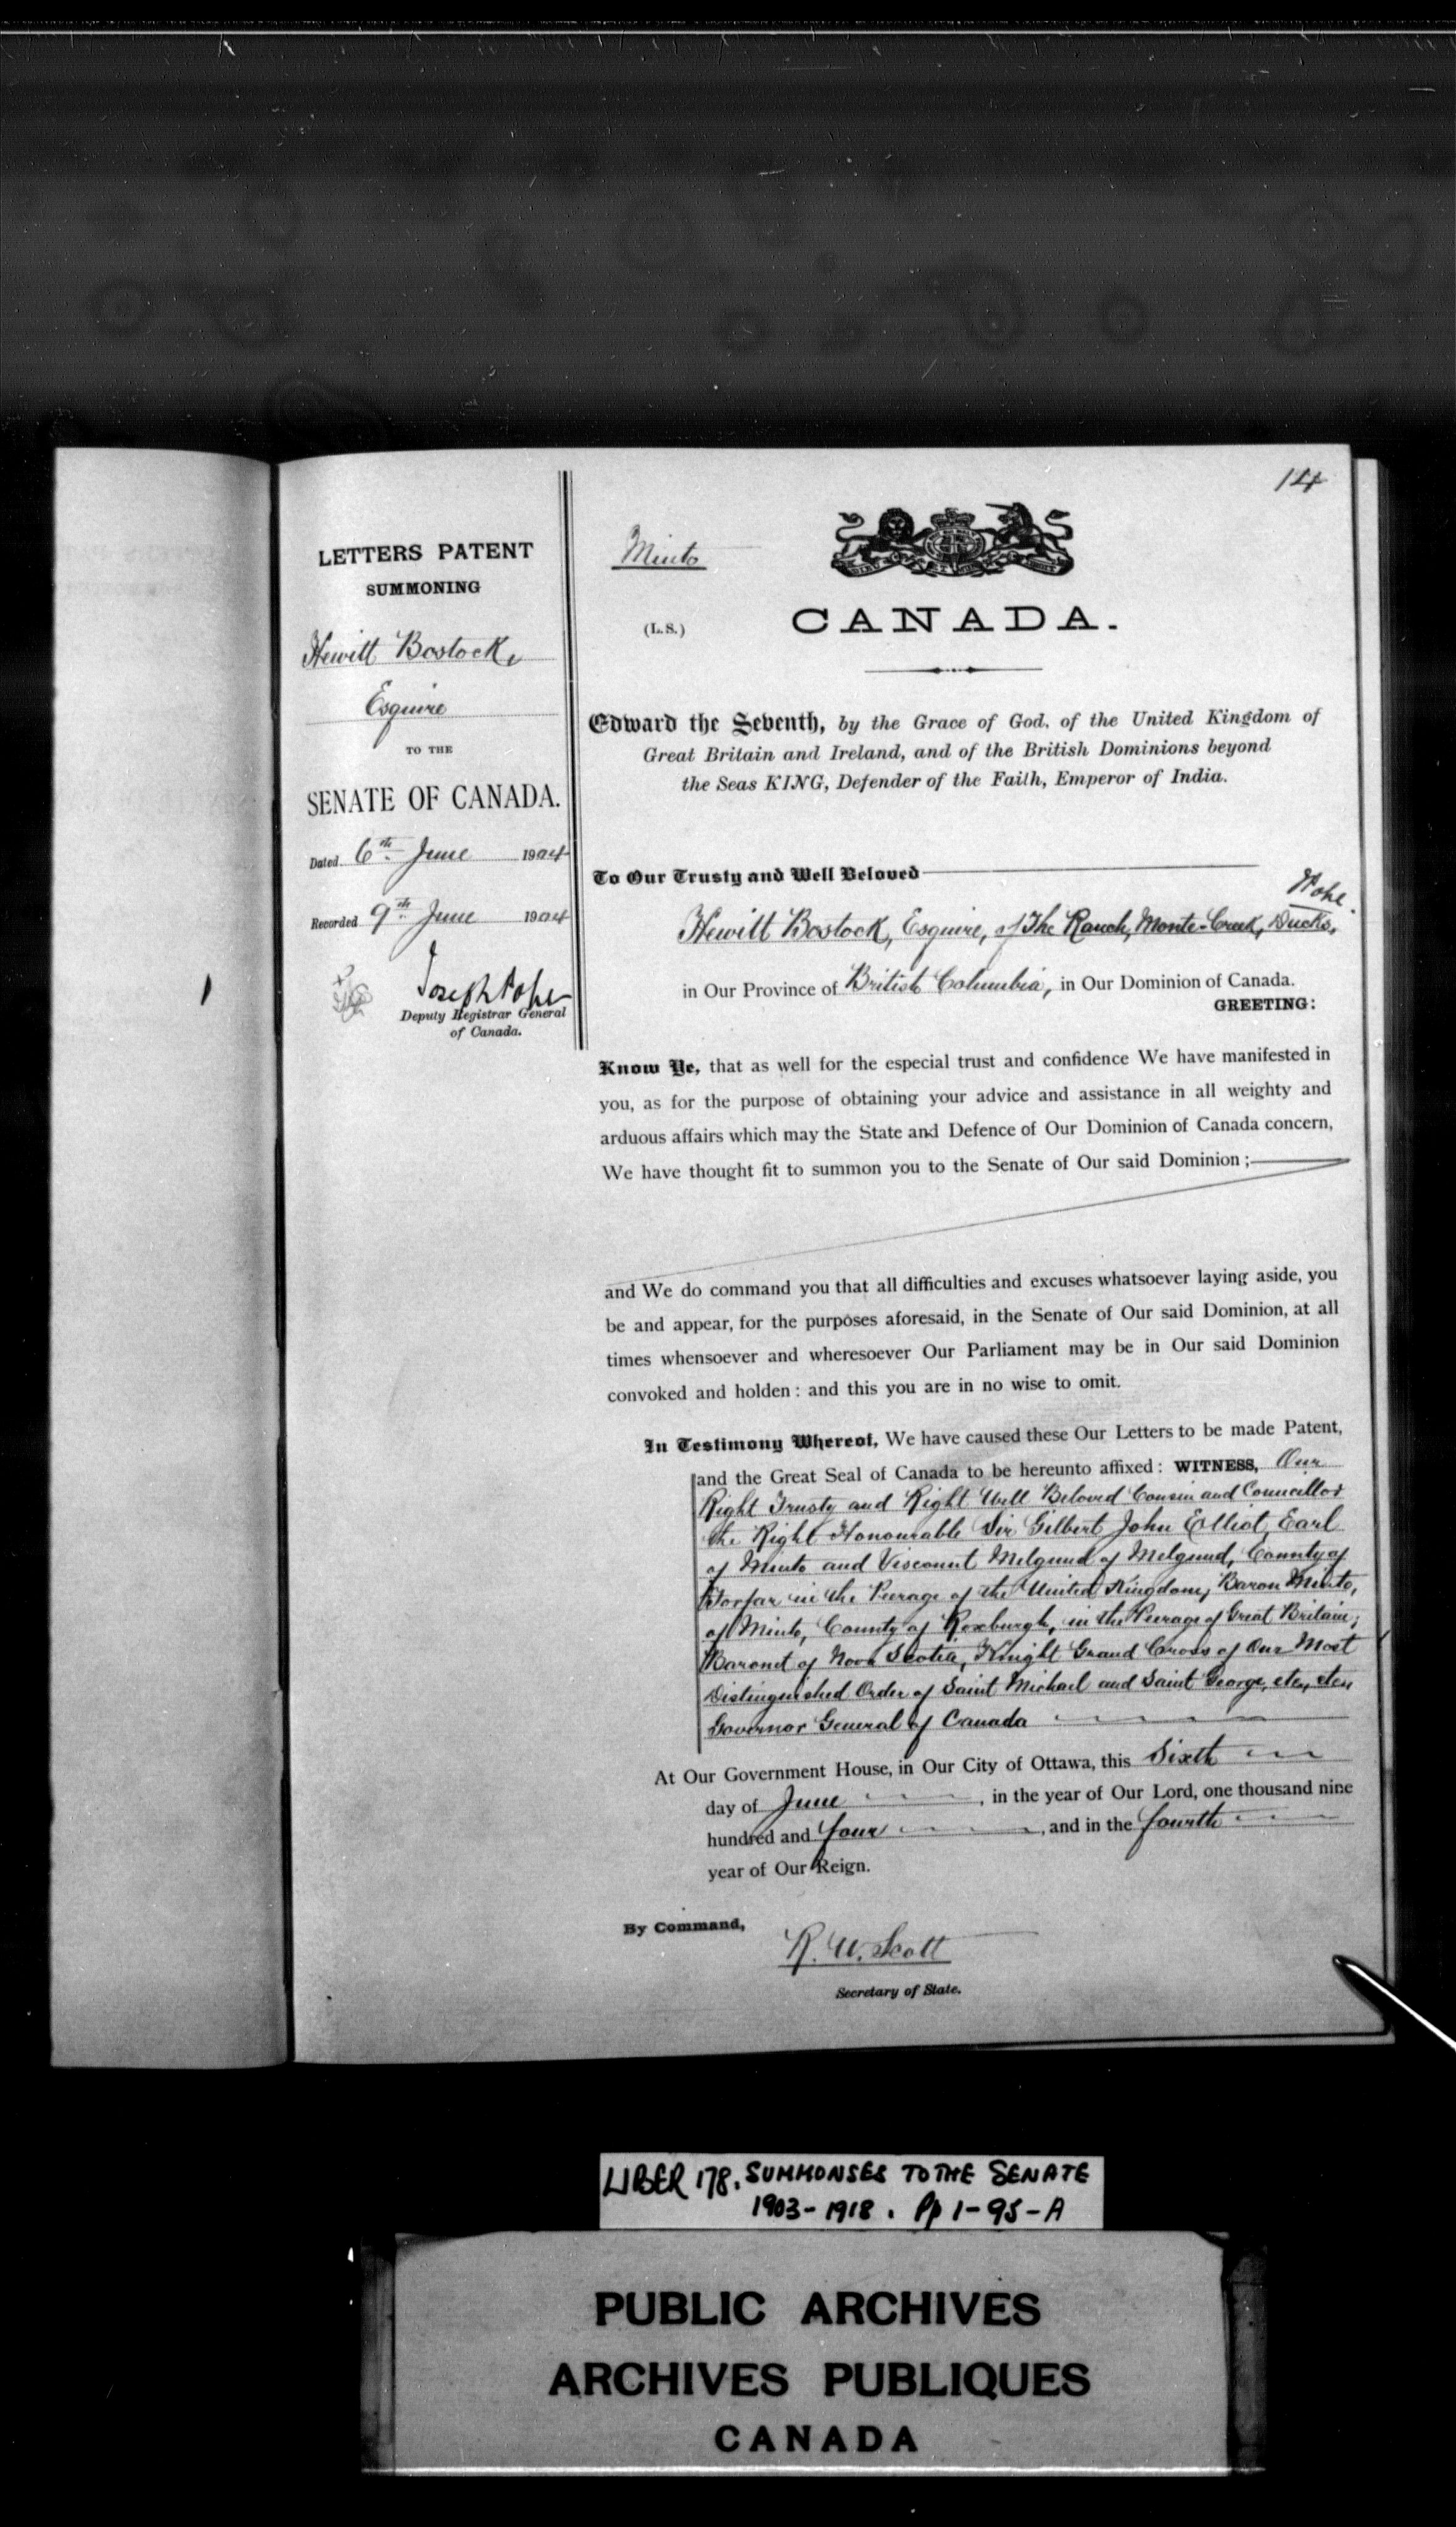 14
LETTERS PATENT
SUMMONING
Hewitt Bostock,
Esquire
TO THE
SENATE OF CANADA.
Dated 6th June 1904
Recorded 9th June 1904
Joseph Pope
Deputy Registrar General
of Canada.
Minto
(L.S.)
CANADA.
Edward the Seventh, by the Grace of God, of the United Kingdom of
Great Britain and Ireland, and of the British Dominions beyond
the Seas KING, Defender of the Faith, Emperor of India.
To Our Trusty and Well Beloved
Pope.
Hewitt Bostock, Esquire, of The Ranch, Monte-Creek, Ducks,
in Our Province of British Columbia, in Our Dominion of Canada.
GREETING:
Know Ye, that as well for the especial trust and confidence We have manifested in
you, as for the purpose of obtaining your advice and assistance in all weighty and
arduous affairs which may the State and Defence of Our Dominion of Canada concern,
We have thought fit to summon you to the Senate of Our said Dominion;
and We do command you that all difficulties and excuses whatsoever laying aside, you
be and appear, for the purposes aforesaid, in the Senate of Our said Dominion, at all
times whensoever and wheresoever Our Parliament may be in Our said Dominion
convoked and holden: and this you are in no wise to omit.
In Testimony Whereof, We have caused these Our Letters to be made Patent,
and the Great Seal of Canada to be hereunto affixed: WITNESS, Our
Right Trusty and Right Well Beloved Cousin and Councillor
the Right Honourable Sir Gilbert John Elliot, Earl
of Minto and Viscount Melgund of Melgund, County of
Forfar in the Peerage of the United Kingdom, Baron Minto,
of Minto, County of Roxburgh, in the Peerage of Great Britain,
Baronet of Nova Scotia, Knight Grand Cross of Our Most
Distinguished Order of Saint Michael and Saint George, etc., etc.,
Governor General of Canada
At Our Government House, in Our City of Ottawa, this Sixth
day of June, in the year of Our Lord, one thousand nine
hundred and four, and in the fourth
year of Our Reign.
By Command,
R. W. Scott
Secretary of State.
LIBER 178. SUMMONSES TO THE SENATE
1903-1918. Pp 1-95-A
PUBLIC ARCHIVES
ARCHIVES PUBLIQUES
CANADA